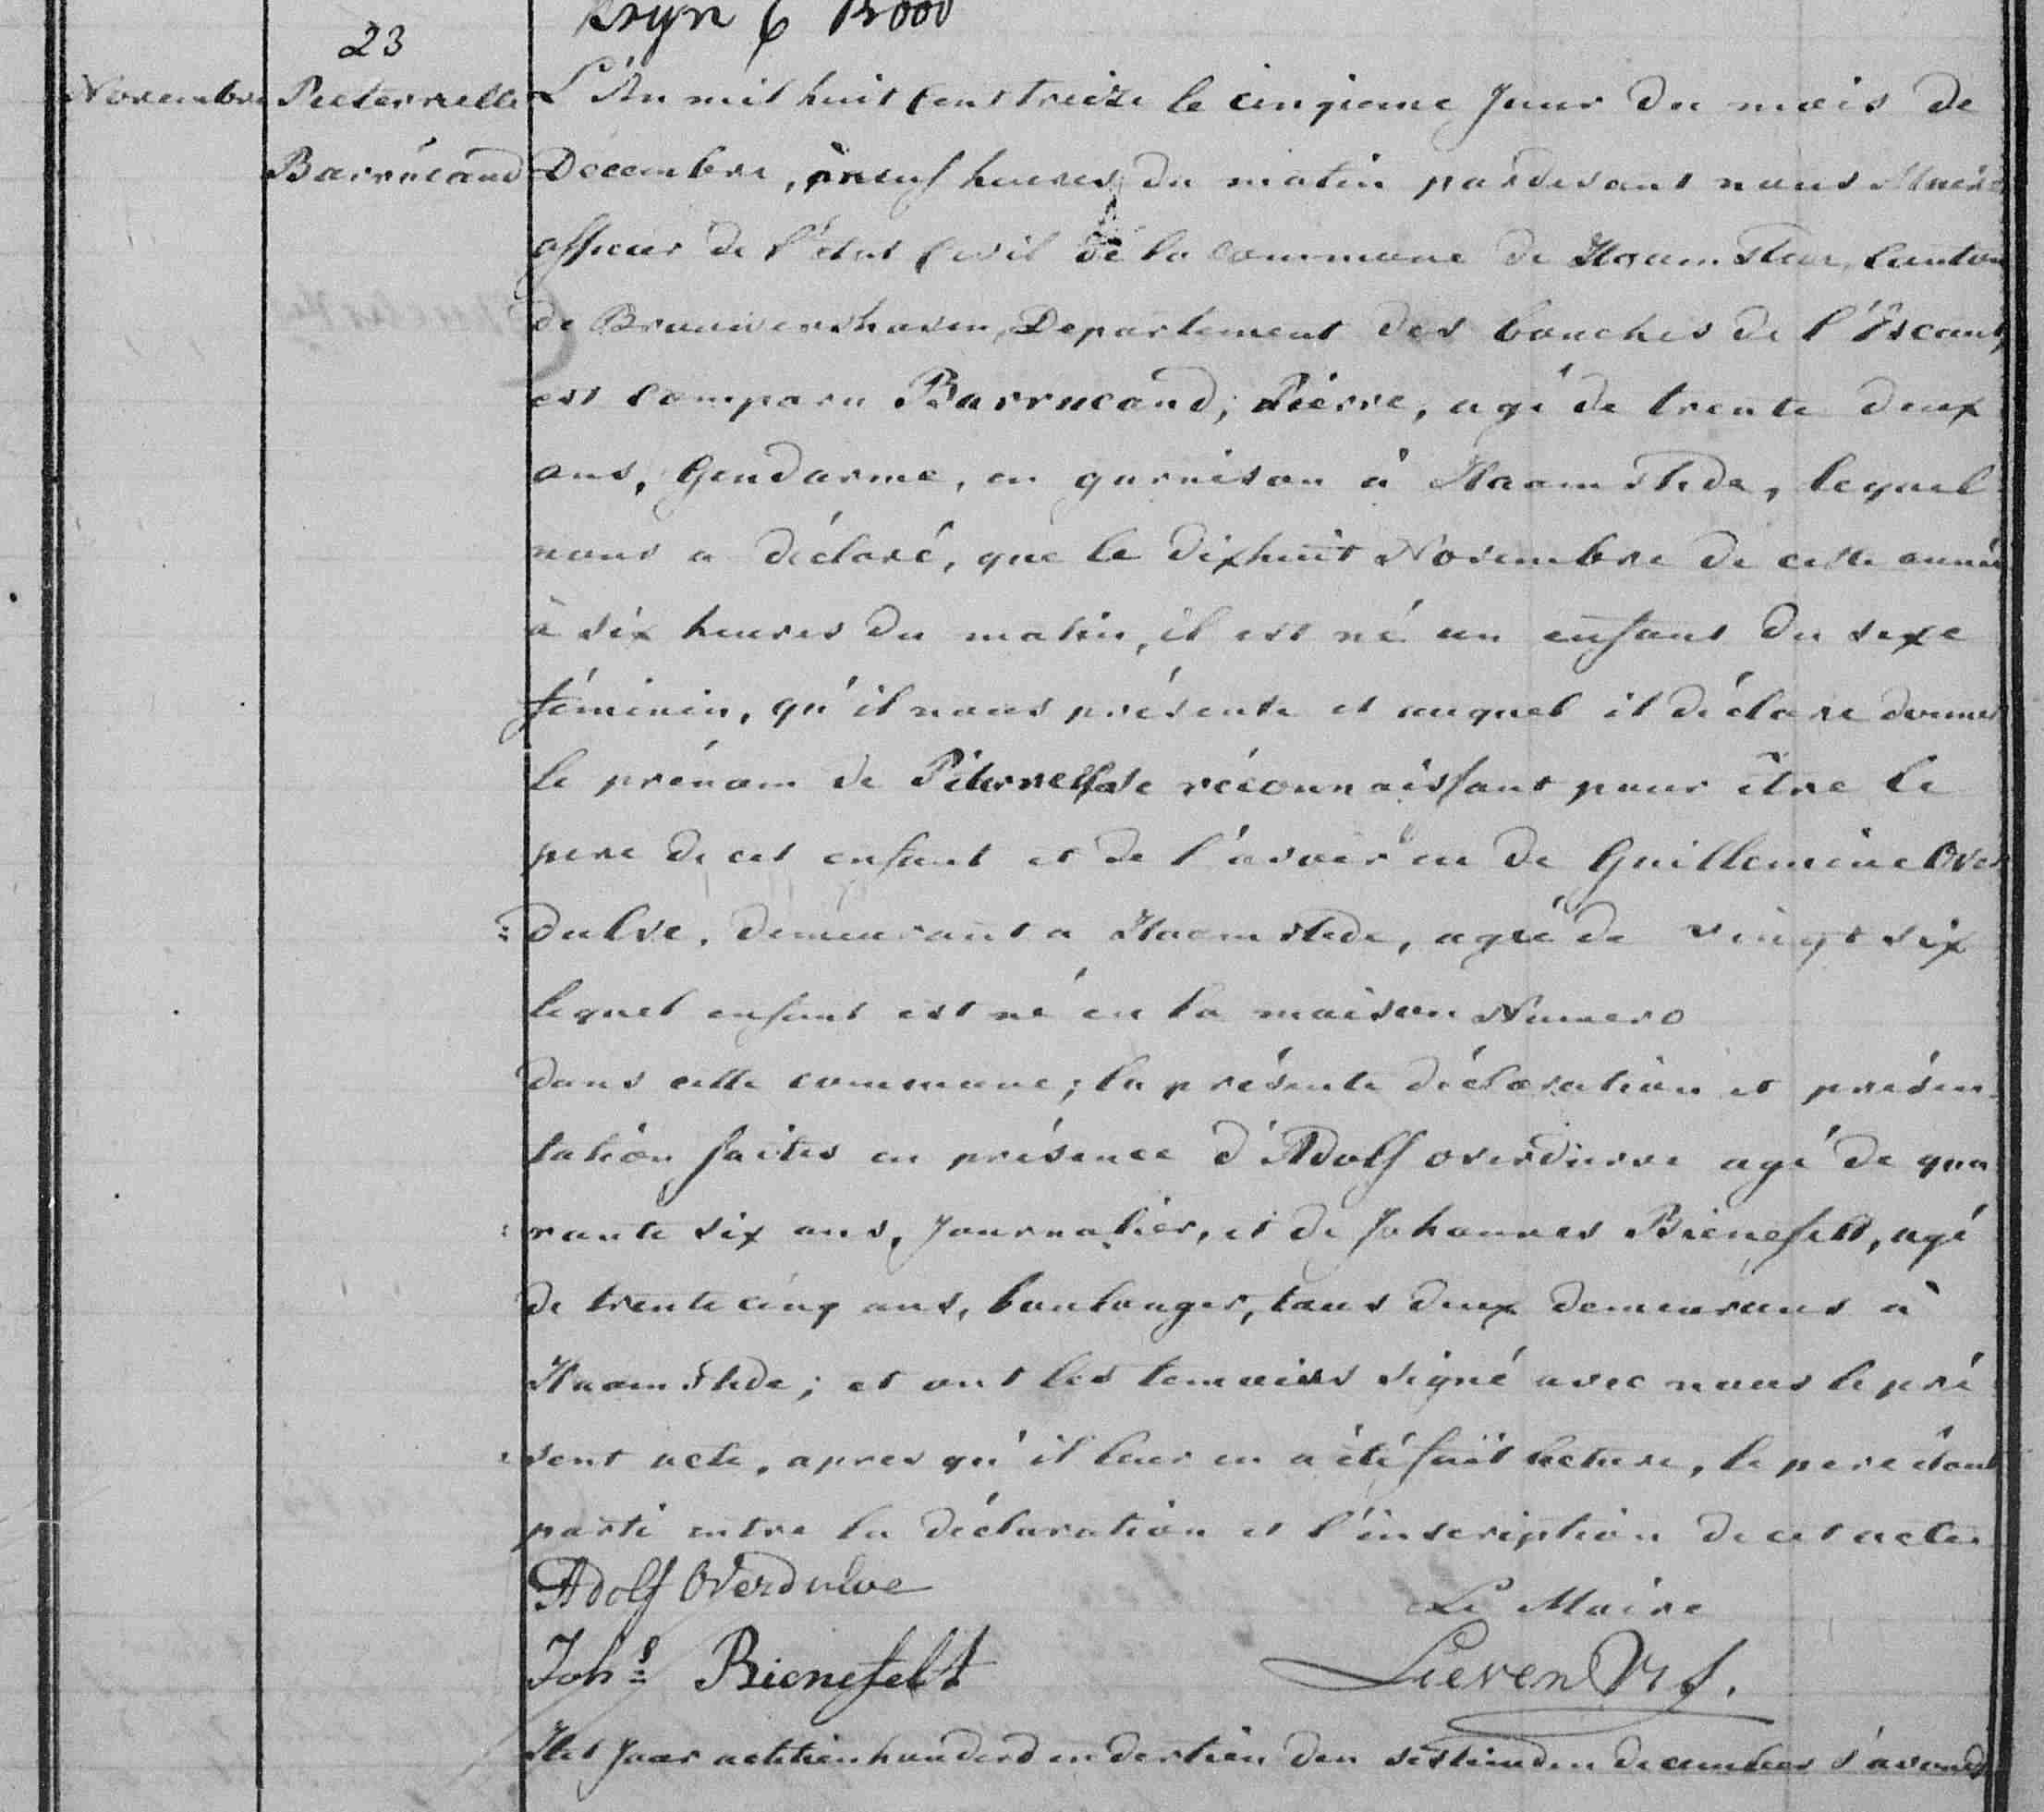 Kryn C Bood
23
Novembre Pieternelle L'An mil huit Cent treize le cinqieme Jour du mois de
Barrucand Decembre, à neuf heures du matin pardevant nous Maire
officier de l'état Civil de la commune de Haamstede, Canton
de Brouwershaven, Departement des bouches de l'Escaut,
est comparu Barrucand, Pierre, agé de trente deux
ans, Gendarme, en garnison à Haamstede, lequel
nous a déclaré, que le dixhuit Novembre de cette année
à six heures du matin, il est né un enfant du sexe
féminin, qu'il nous présente et auquel il déclare donner
le prénom de Piternelle se réconnaissant pour être le
pere de cet enfant et de l'avoir eu de Guillemine Over
=dulve, demeurant a Haamstede, agée de vingt six
lequel enfant est né en la maison Numero
dans cette commune; la présente déclaration et présen
tation faites en présence d'Adolf overdurve agé de qua
=rante six ans, Journalier, et de Johannes Bienefelt, agé
de trente cinq ans, boulanger, tous deux demeurans à
Haamstede; et ont les temoins signé avec nous le pré
=sent acte, apres qu'il leur en a été fait lecture, le pere étant
parti entre la déclaration et l'inscription de cet acte.
Adolf Overdulve
Le Maire
Joh:s Bienefelt
Lieven
Het Jaar achttienhonderd en dertien den sestienden december s'avonds